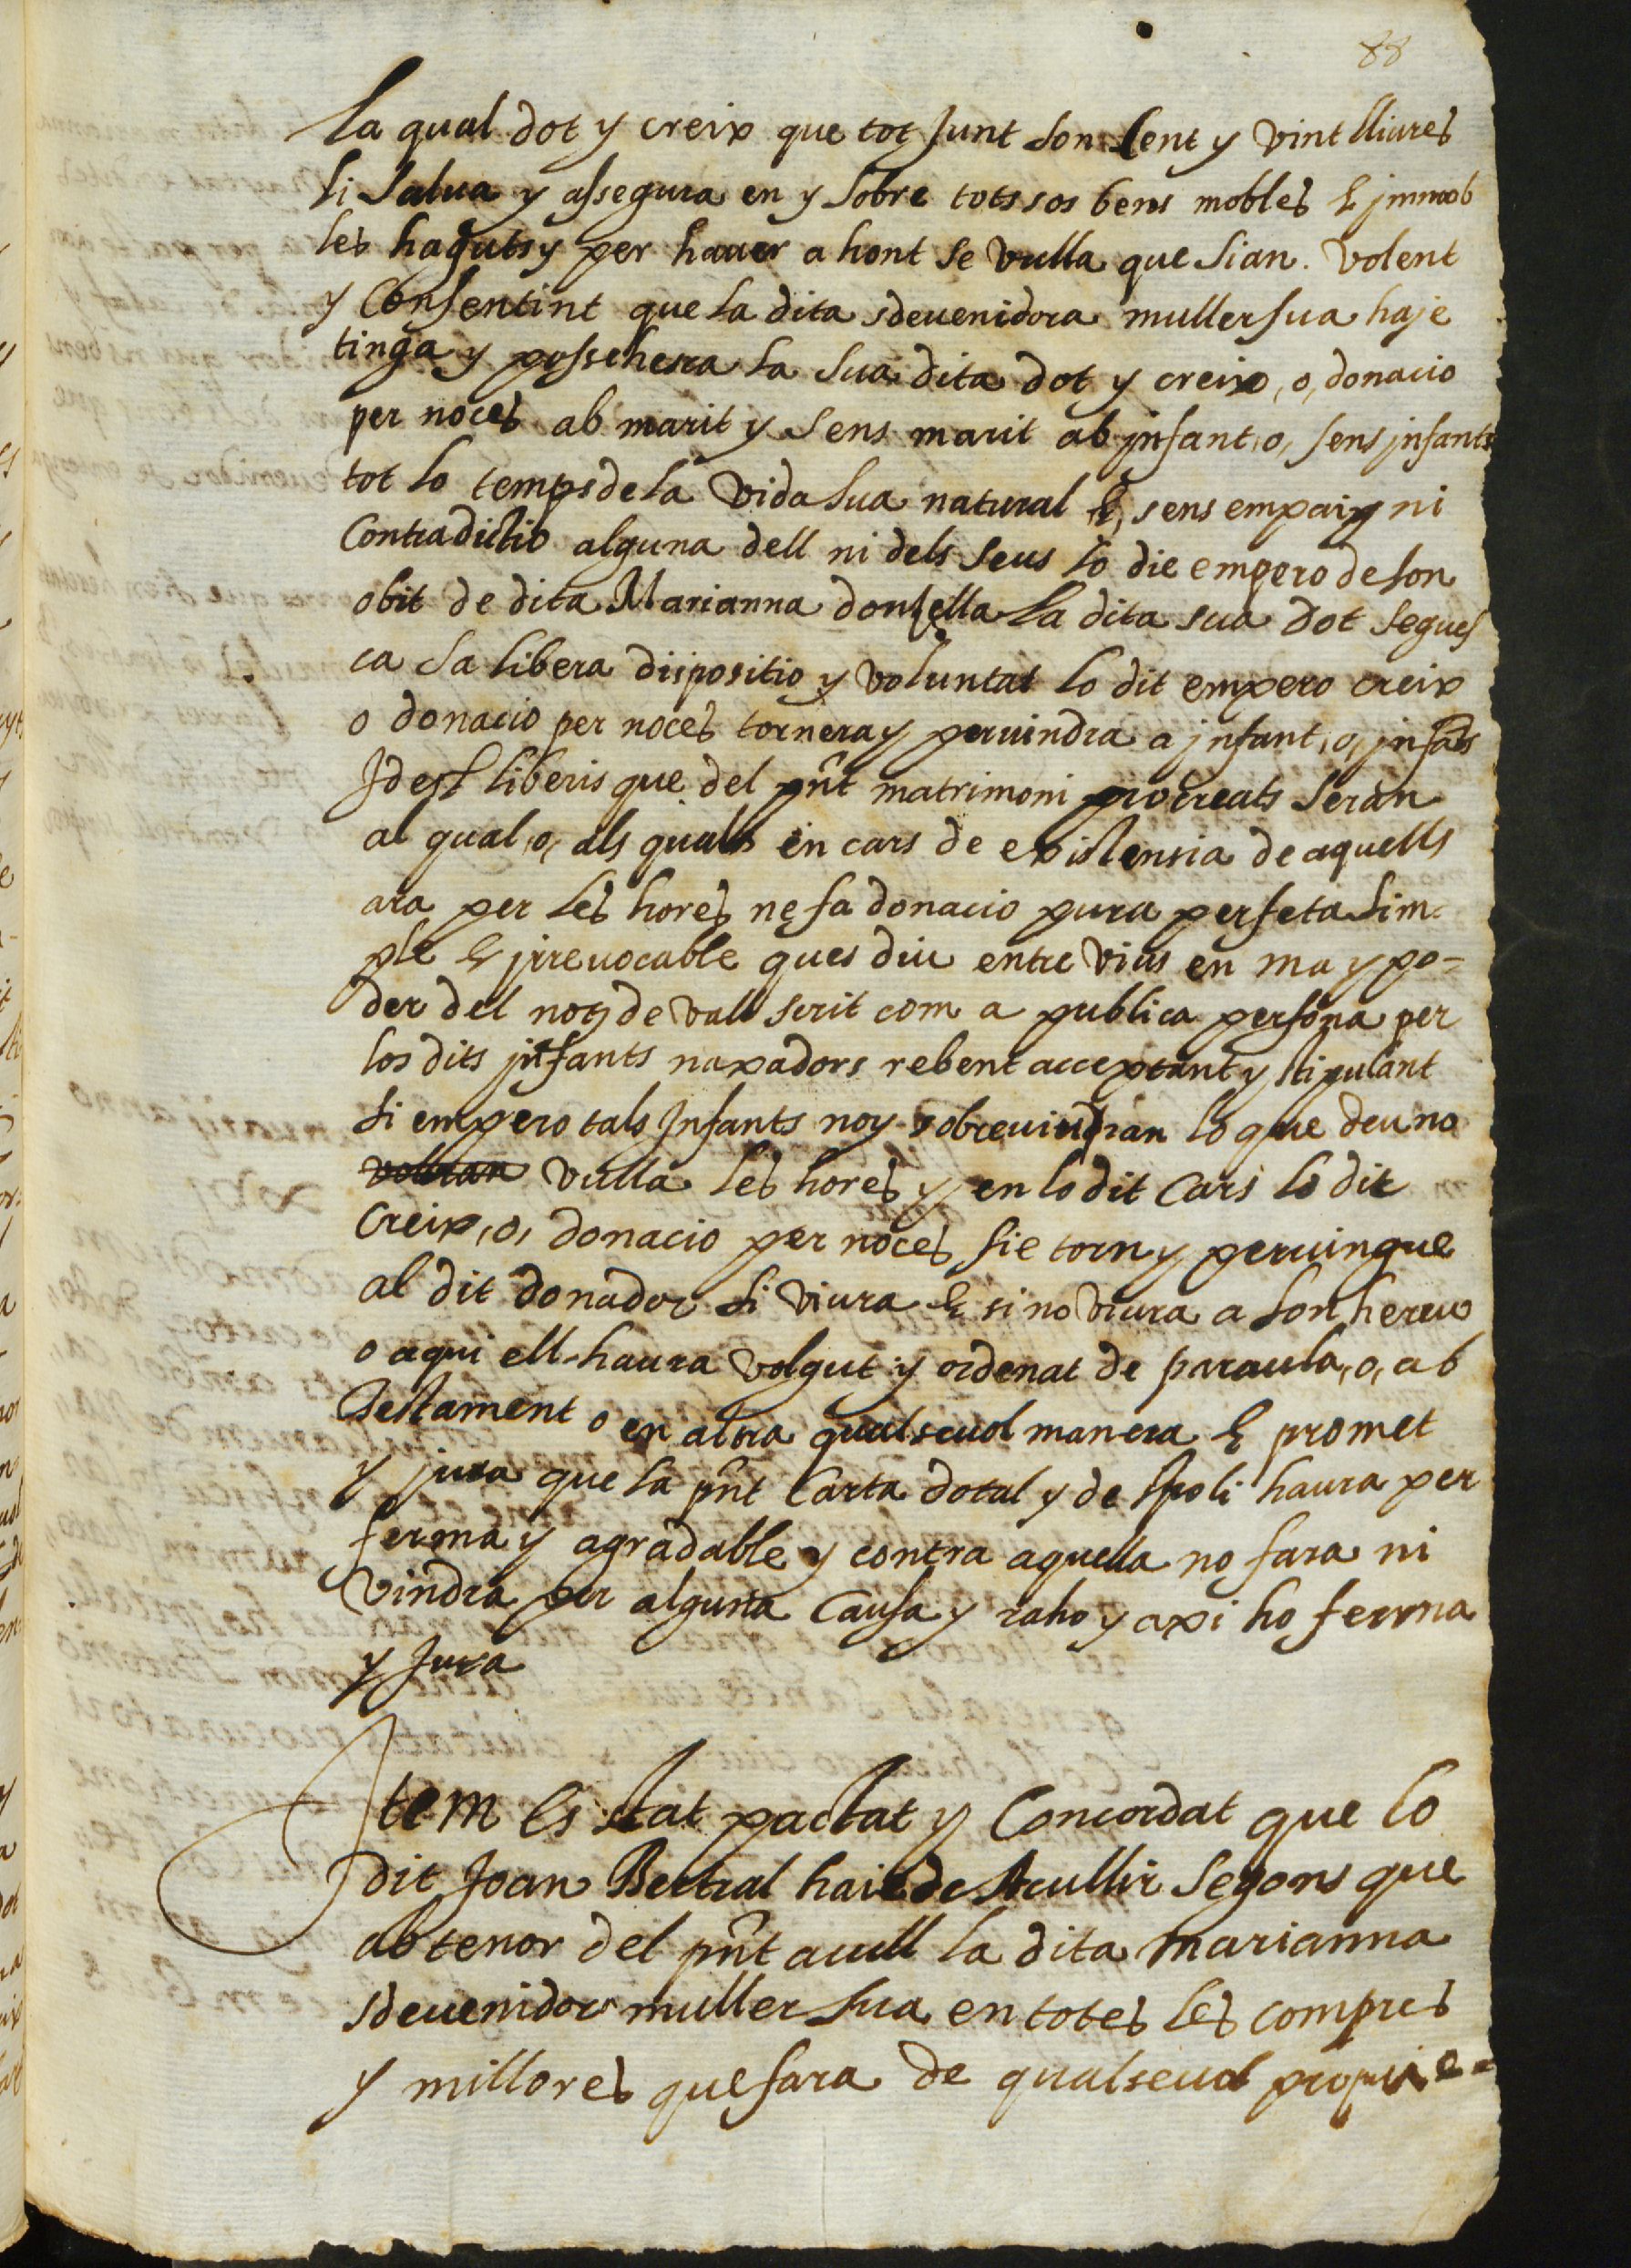 88
la qual dot y creix que tot junt son Cent y vint lliures
li salua y assegura en y sobre tots sos bens mobles & jmmob
les haguts y per hauer a hont se vulla que sian. volent
y Consentint que la dita sdeuenidora muller sua haje
tinga y possehesca la sua dita dot y creix, o, donacio
per noces ab marit y sens marit ab jnfant, o, sens jnfants
tot lo temps de la vida sua natural &, sens empaig ni
Contradictio alguna dell ni dels seus lo die empero de son
obit de dita Marianna donsella la dita sua dot segues
ca sa libera dispositio y voluntat lo dit empero creix
o donacio per noces tornera y peruindra a jnfant, o, jnfãts
Jdest liberis que del pñt matrimoni procreats seran
al qual, o, als quals en cars de existensia de aquells
ara per les hores ne fa donacio pura perfeta sim=
ple & jrreuocable ques diu entre vius en ma y po=
der del not de vall scrit com a publica persona per
los dits jnfants naxadors rebent acceptant y stipulant
si empero tals Jnfants noy sobreuindran lo que deu no
vulla les hores y en lo dit Cars lo dit
Creix, o, donacio per noces sie torn y peruingue
al dit donador si viura & si no viura a son hereu
o aqui ell haura volgut y ordenat de paraula, o, ab
testament o en altra qualseuol manera & promet
y jura que la pñt Carta dotal y de spoli haura per
ferma y agradable y contra aquella no fara ni
vindra per alguna Causa y raho y axi ho ferma
y Jura
Jtem es stat pactat y Concordat que lo
dit Joan Bertral haie de Acullir segons que
ab tenor del pñt acull la dita Marianna
sdeuenidora muller sua en totes les compres
y millores que fara de qualseuol propie=